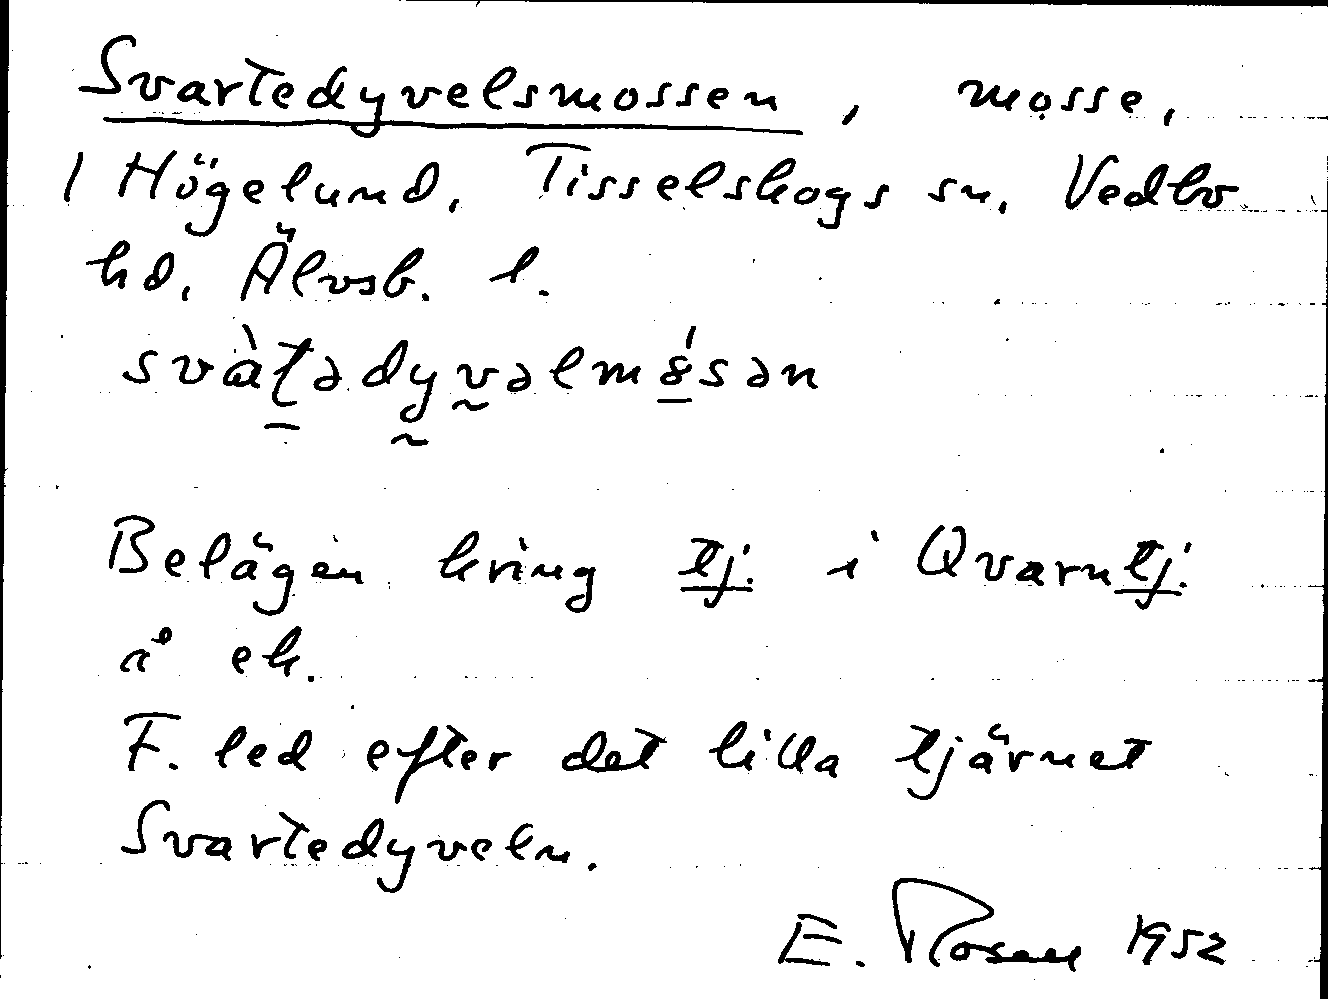 Svartedyvelsmossen, mosse,
1 Högelund, Tisselskogs sn, Vedbo
hd, Älvsb. l.
svàt̠ədy̰v̰əlmó̠sən
Belägen kring tj. i Qvarntj.
å ek.
F. led efter det lilla tjärnet
Svartedyveln.
E. Rosen 1952